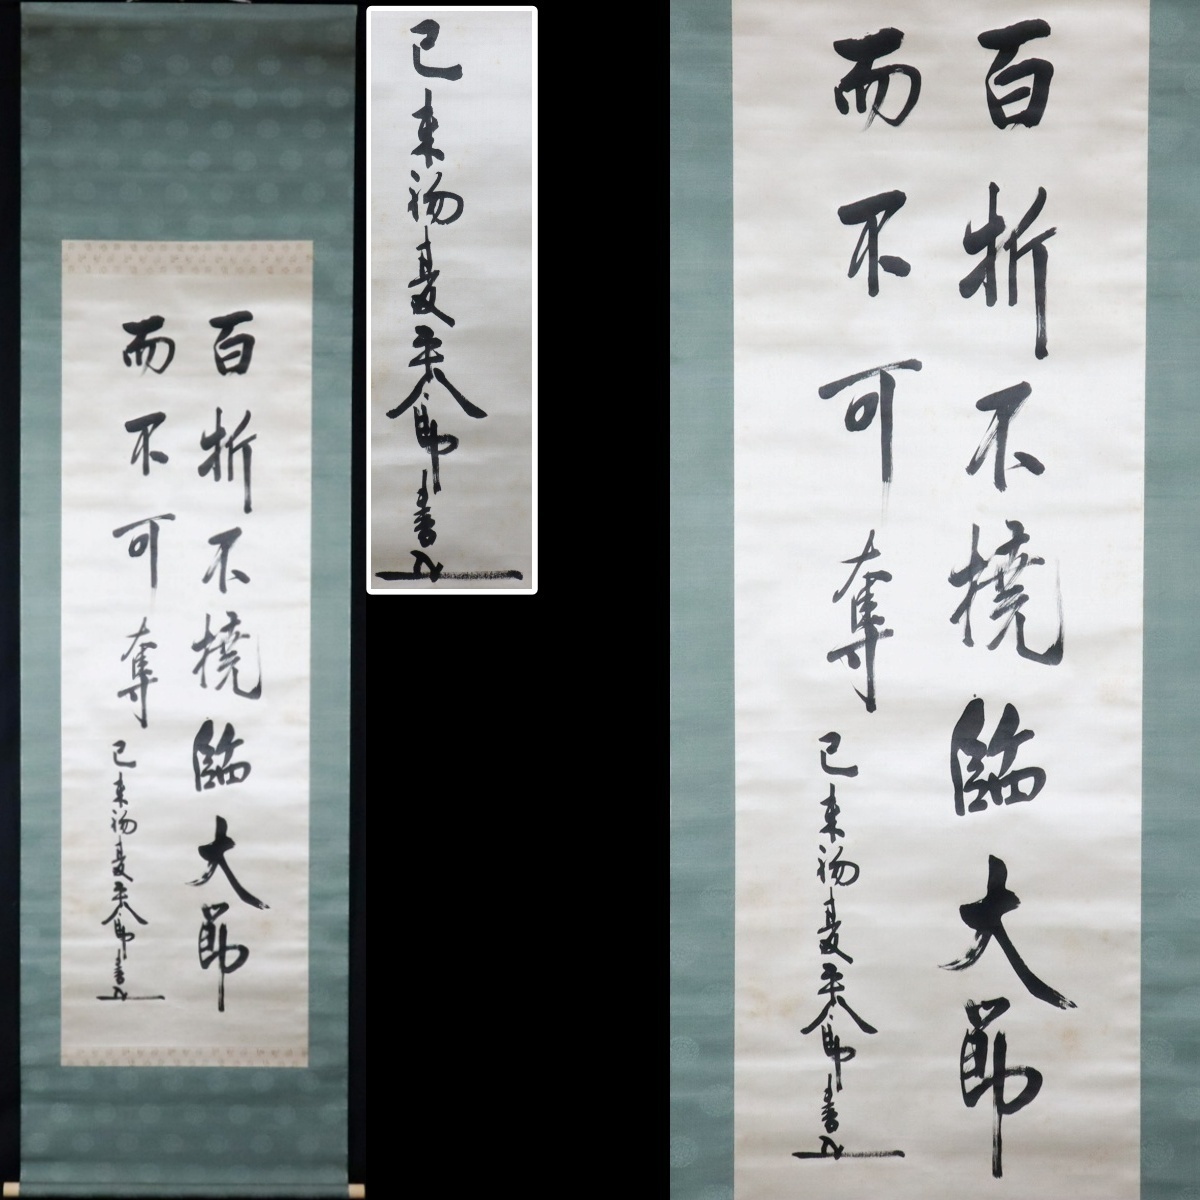 百折不撓臨大節
而不可奪 己未初夏平八郎書
己未初夏平八郎書
百折不撓臨大節
而不可奪 己未初夏平八郎書